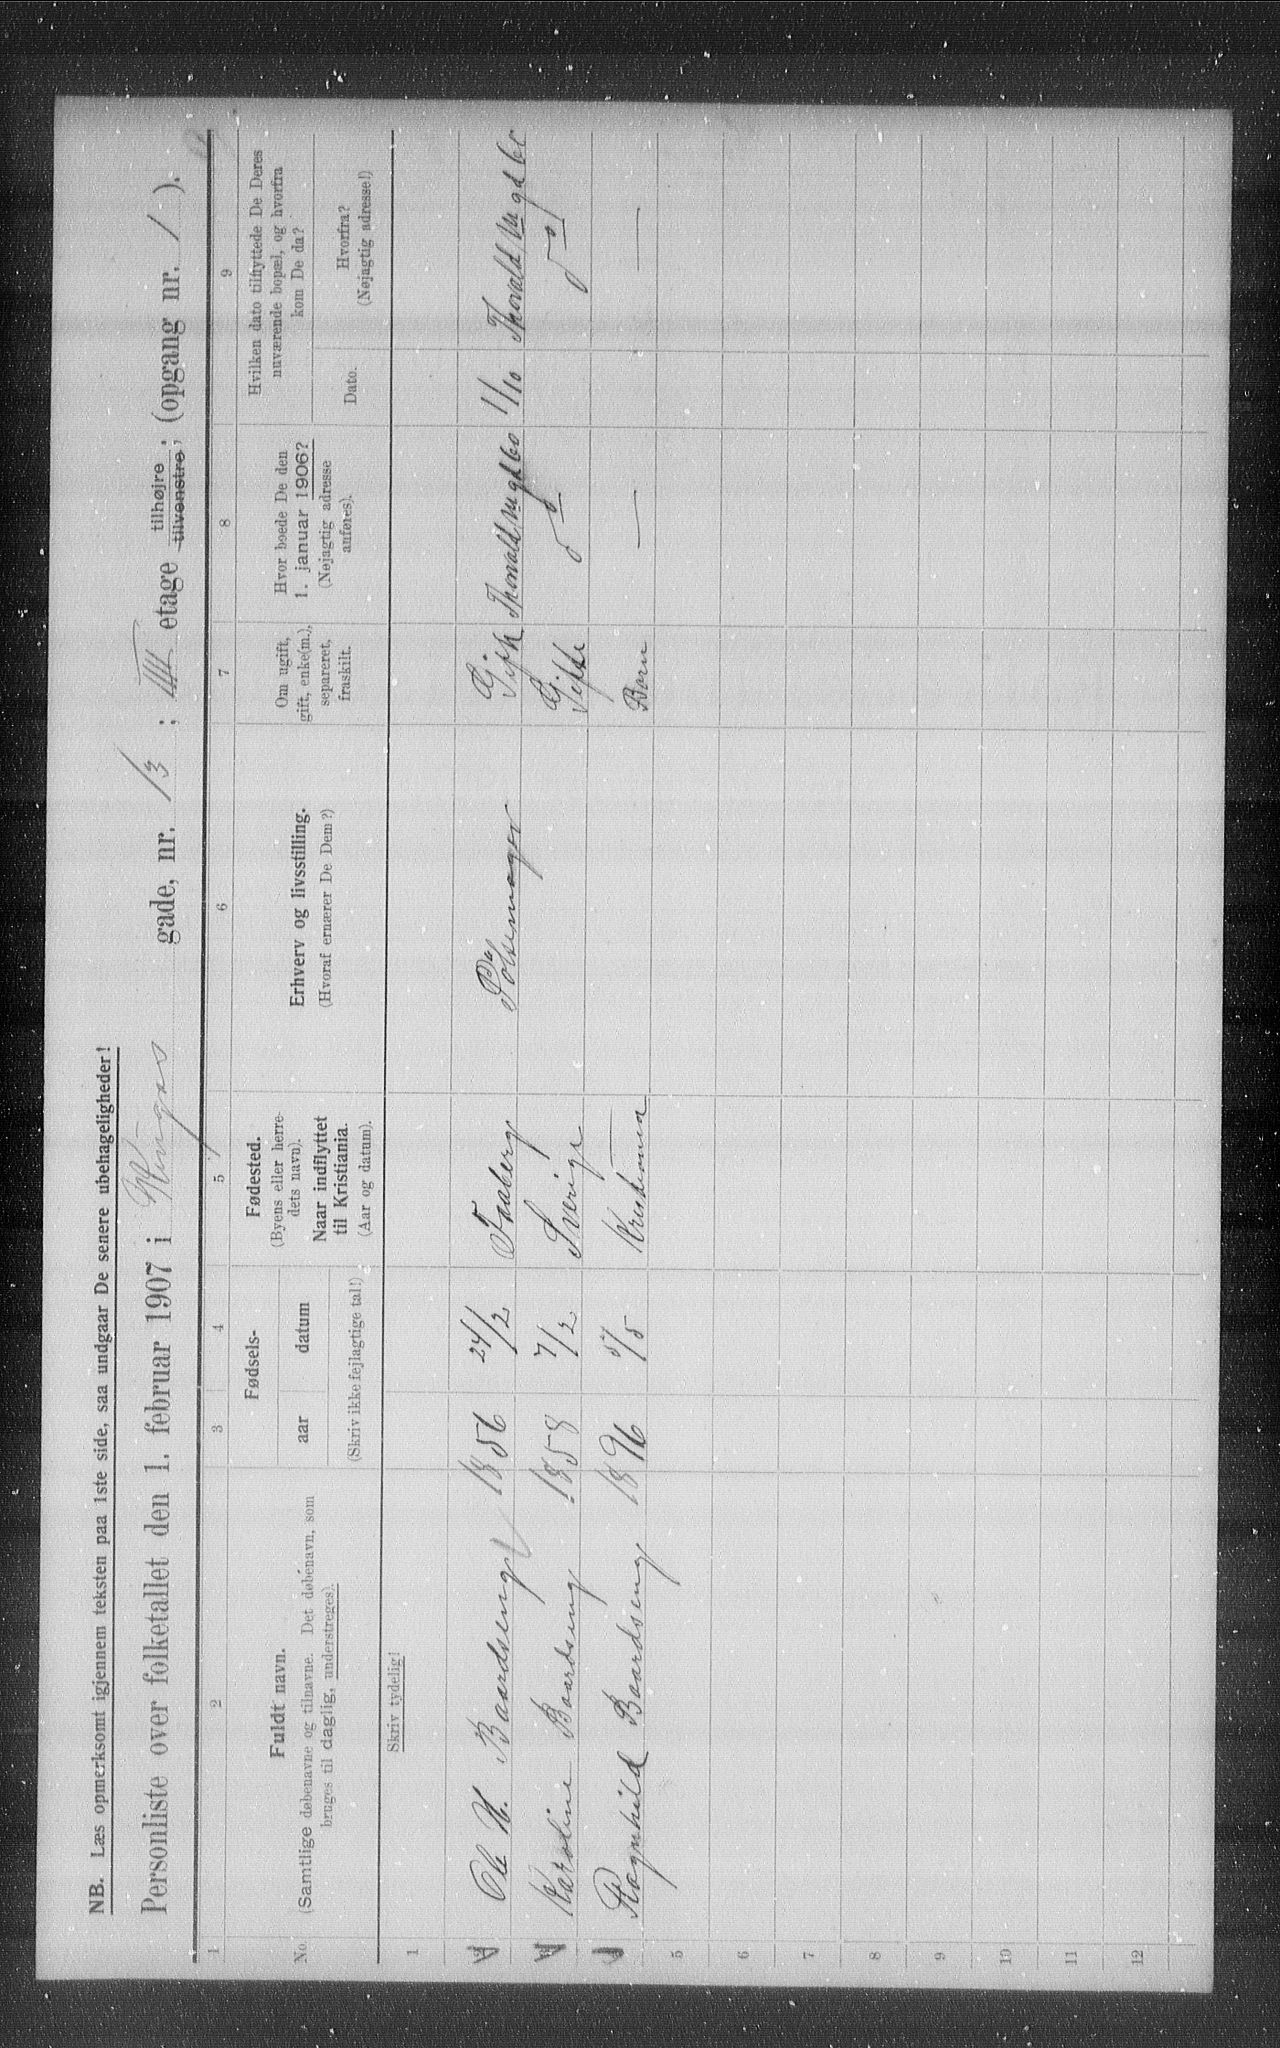 NB. Læs opmerksomt igjennem teksten paa 1ste side, saa undgaar De senere ubehageligheder!
Personliste over folketallet den 1. februar 1907 i gade, nr. 13 ; III etage tilhøjre tilvenstre ; (opgang nr. 1 ).
1 2 3 4 5 6 7 8 9
No.
Fuldt navn.
(Samtlige døbenavne og tilnavne. Det døbenavn, som
bruges til daglig, understreges).
Fødsels-
aar datum
(Skriv ikke fejlagtige tal!)
Fødested.
(Byens eller herre-
dets navn).
Naar indflyttet
til Kristiania.
(Aar og datum).
Erhverv og livsstilling.
(Hvoraf ernærer De Dem?)
Om ugift,
gift, enke(m.),
separeret,
fraskilt.
Hvor boede De den
1. januar 1906?
(Nøjagtig adresse
anføres).
Hvilken dato tilflyttede De Deres
nuværende bopæl, og hvorfra
kom De da?
Dato.
Hvorfra?
(Nøjagtig adresse!)
Skriv tydelig!
1
Ole H. Baardseng 1856 24/2 Faaberg Pølsemager Gift Thorvald Mgd 60 1/10 Thorvald Mgd 60
Karoline Baardseng 1858 7/2 Sverige Gifte do do
Ragnhild Baardseng 1896 5/5 Kristiania Barn — —
5
6
7
8
9
10
11
12